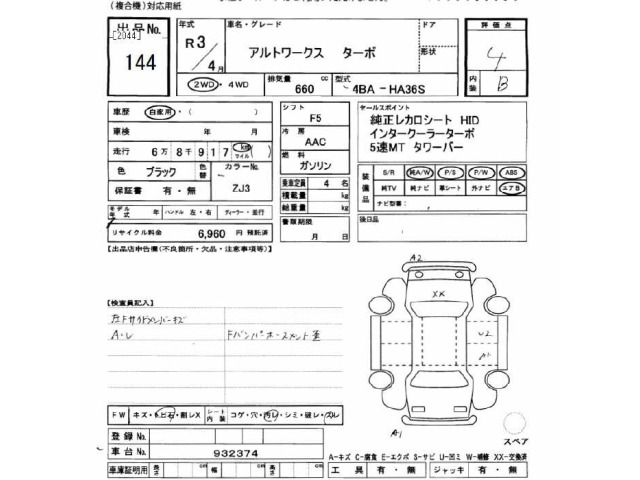 (複合機)対応用紙
出品No.
[2044]
144
年式
R3/4月
車名・グレード
アルトワークス ターボ
ドア
形状
2WD・4WD
排気量 660 cc
型式 4BA-HA36S
評価点
4
内装 B
車歴 自家用・( )
車検 年 月
走行 6万8千917 km マイル
色 ブラック
色替
カラーNo. ZJ3
保証書 有・無
シフト F5
冷房 AAC
燃料 ガソリン
乗車定員 4 名
積載量 kg
総重量 kg
書類期限
月 日
セールスポイント
純正レカロシート HID
インタークーラーターボ
5速MT タワーバー
装備品
S/R 純A/W P/S P/W ABS
純TV 純ナビ 革シート 外ナビ エアB
ナビ型番:
後日品
モデル年式 年 ハンドル 左・右 ディーラー・並行
リサイクル料金 6,960 円 預託済
【出品店申告欄(不良箇所・欠品・注意事項等)】
【検査員記入】
左Fサイドメンバーキズ
A・U
Fバンパーホースメント歪
A2
XX
U2
A1
A1
スペア
FW キズ・トビ石・割レX
シート内装 コゲ・穴・汚レ・シミ・破レ・スレ
登録No.
車台No. 932374
車庫証明用 長さ cm 幅 cm 高さ cm
A-キズ C-腐食 E-エクボ S-サビ U-凹ミ W-補修 XX-交換済
工具 有・無 ジャッキ 有・無